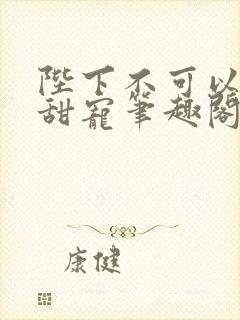 陛下不可以
甜宠筆趣閣
康健